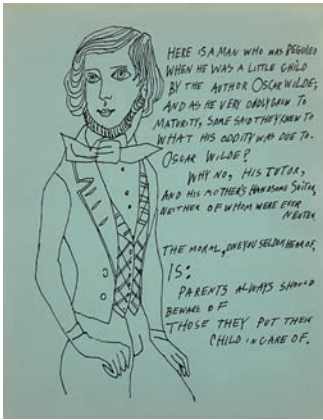 HERE IS A MAN WHO WAS
WHEN HE WAS A LITTLE CHILD
BY THE AUTHOR OSCAR WILDE;
AND AS HE VERY ODDLY GREW TO
MATURITY, SOME SAID THEY KNEW TO
WHAT HIS ODDITY WAS DUE TO.
OSCAR WILDE?
WHY NO, HIS TUTOR,
AND HIS MOTHER'S HANDSOME SUITOR,
NEITHER OF WHOM WERE EVER
NEUTER.
THE MORAL, ONE YOU SELDOM HEAR OF,
IS:
PARENTS ALWAYS SHOULD
BEWARE OF
THOSE THEY PUT THEIR
CHILD IN CARE OF.